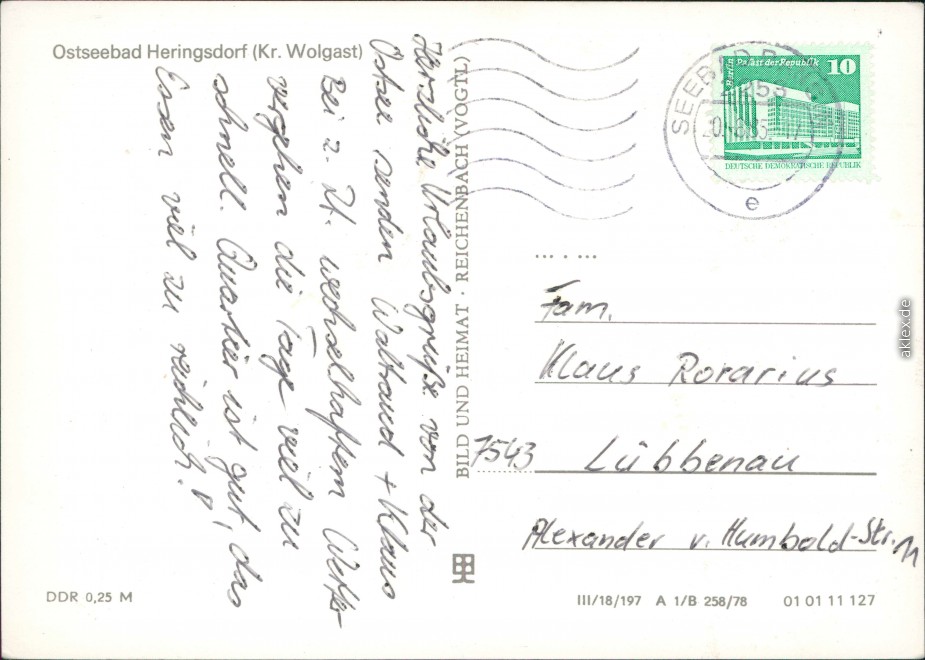 Ostseebad Heringsdorf (Kr. Wolgast)
Herzliche Urlaubsgrüße von der
Ostsee senden Waltraud + Klaus
Bei z. Zt. wechselhaftem Wetter
vergehen die Tage viel zu
schnell. Quartier ist gut, das
Essen viel zu reichlich!
BILD UND HEIMAT · REICHENBACH (VOGTL)
Berlin Palast der Republik 10
DEUTSCHE DEMOKRATISCHE REPUBLIK
SEEBAD
2253
e
Fam.
Klaus Rorarius
7543 Lübbenau
Alexander v. Humbold-Str. 11
DDR 0,25 M
III/18/197 A 1/B 258/78 01 01 11 127
aklex.de